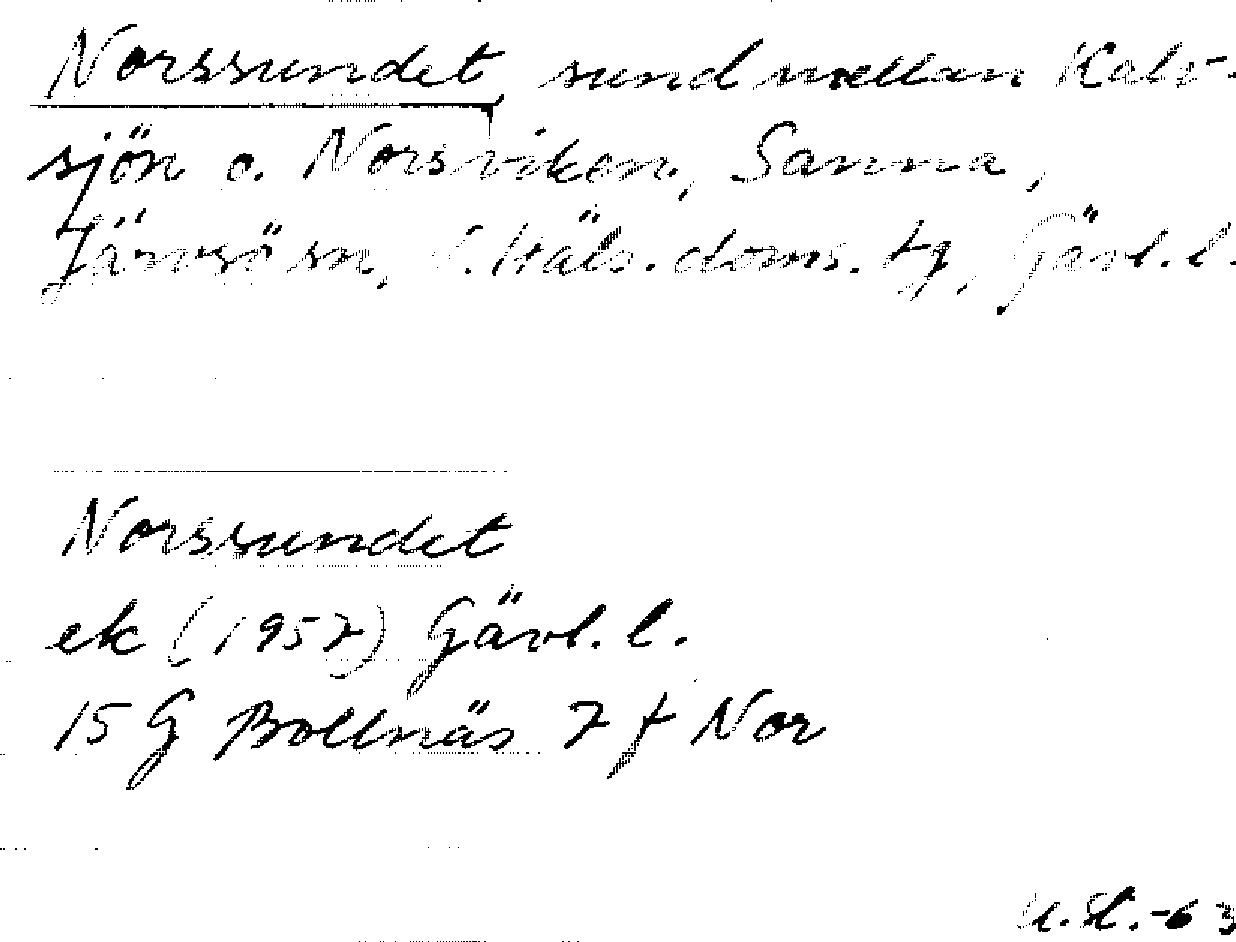 Norssundet, sund mellan Kalv-
sjön o. Norsviken, Sanna,
Järvsö sn, V. Häls. doms. tg, Gävl. l.
Norssundet
ek (1957) Gävl. l.
15 G Bollnäs 7 f Nor
U. St. -63